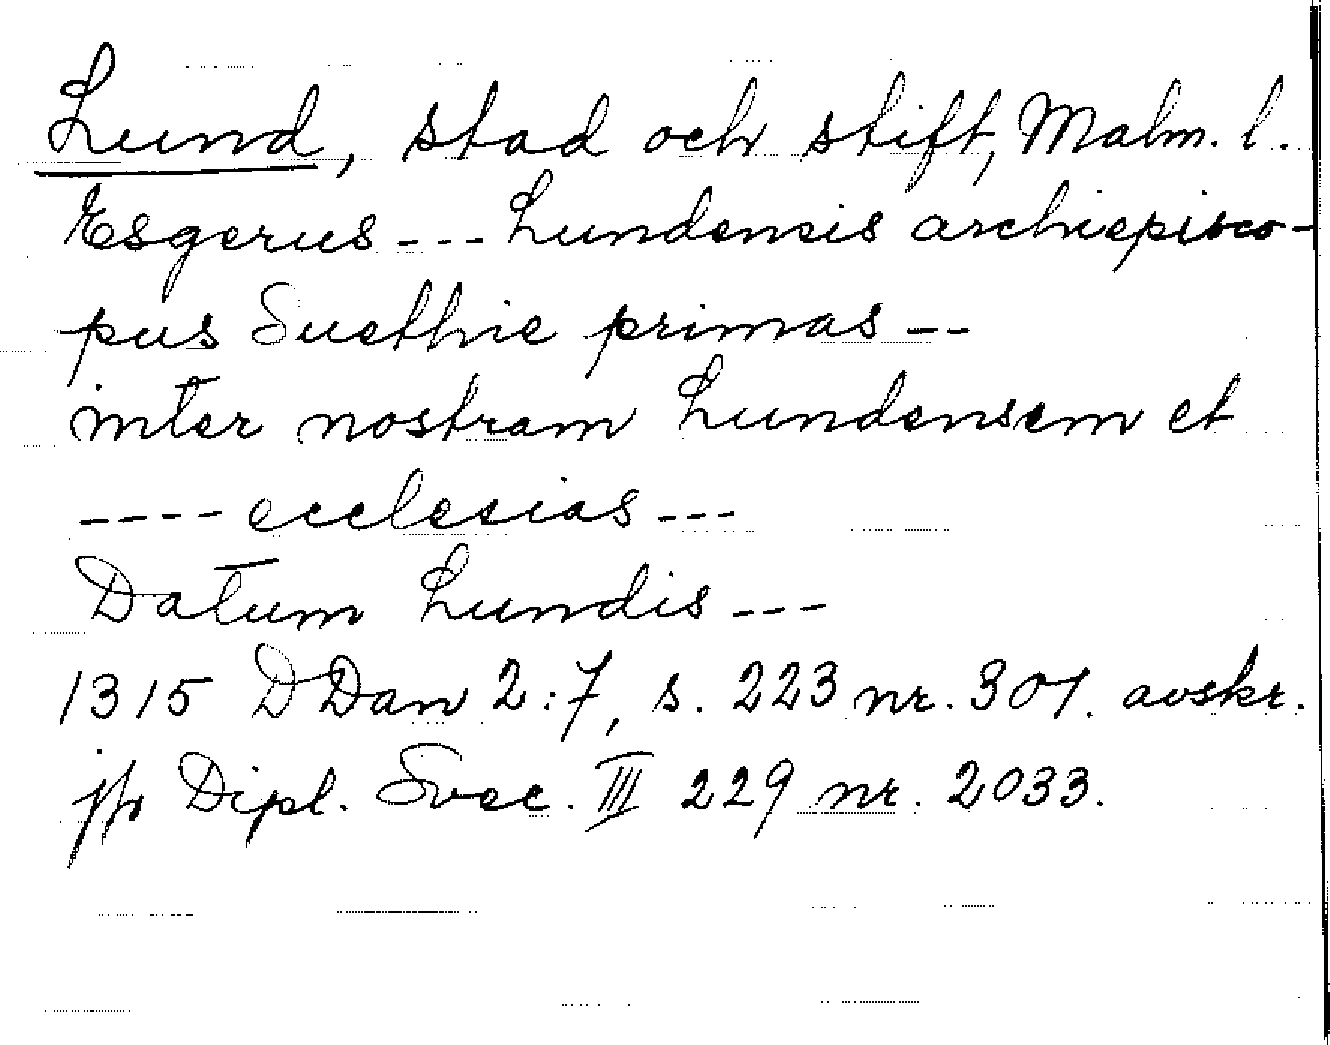 Lund, stad och stift, Malm. l.
Esgerus --- Lundensis archiepisco-
pus Suethie primas --
inter nostram Lundensem et
---- ecclesias ---
Datum Lundis ---
1315 DDan 2:7, s. 223 nr. 301. avskr.
jfr Dipl. Svec. III 229 nr. 2033.